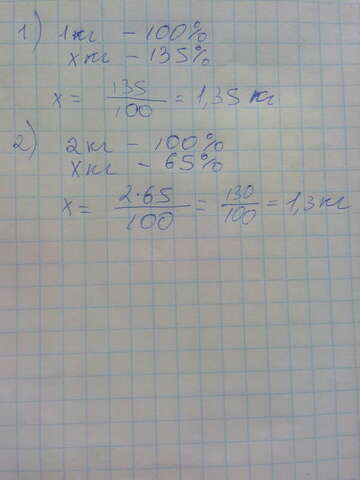 1) 1кг - 100%
xкг - 135%
x = 135/100 = 1,35 кг
2) 2кг - 100%
xкг - 65%
x = 2·65/100 = 130/100 = 1,3кг